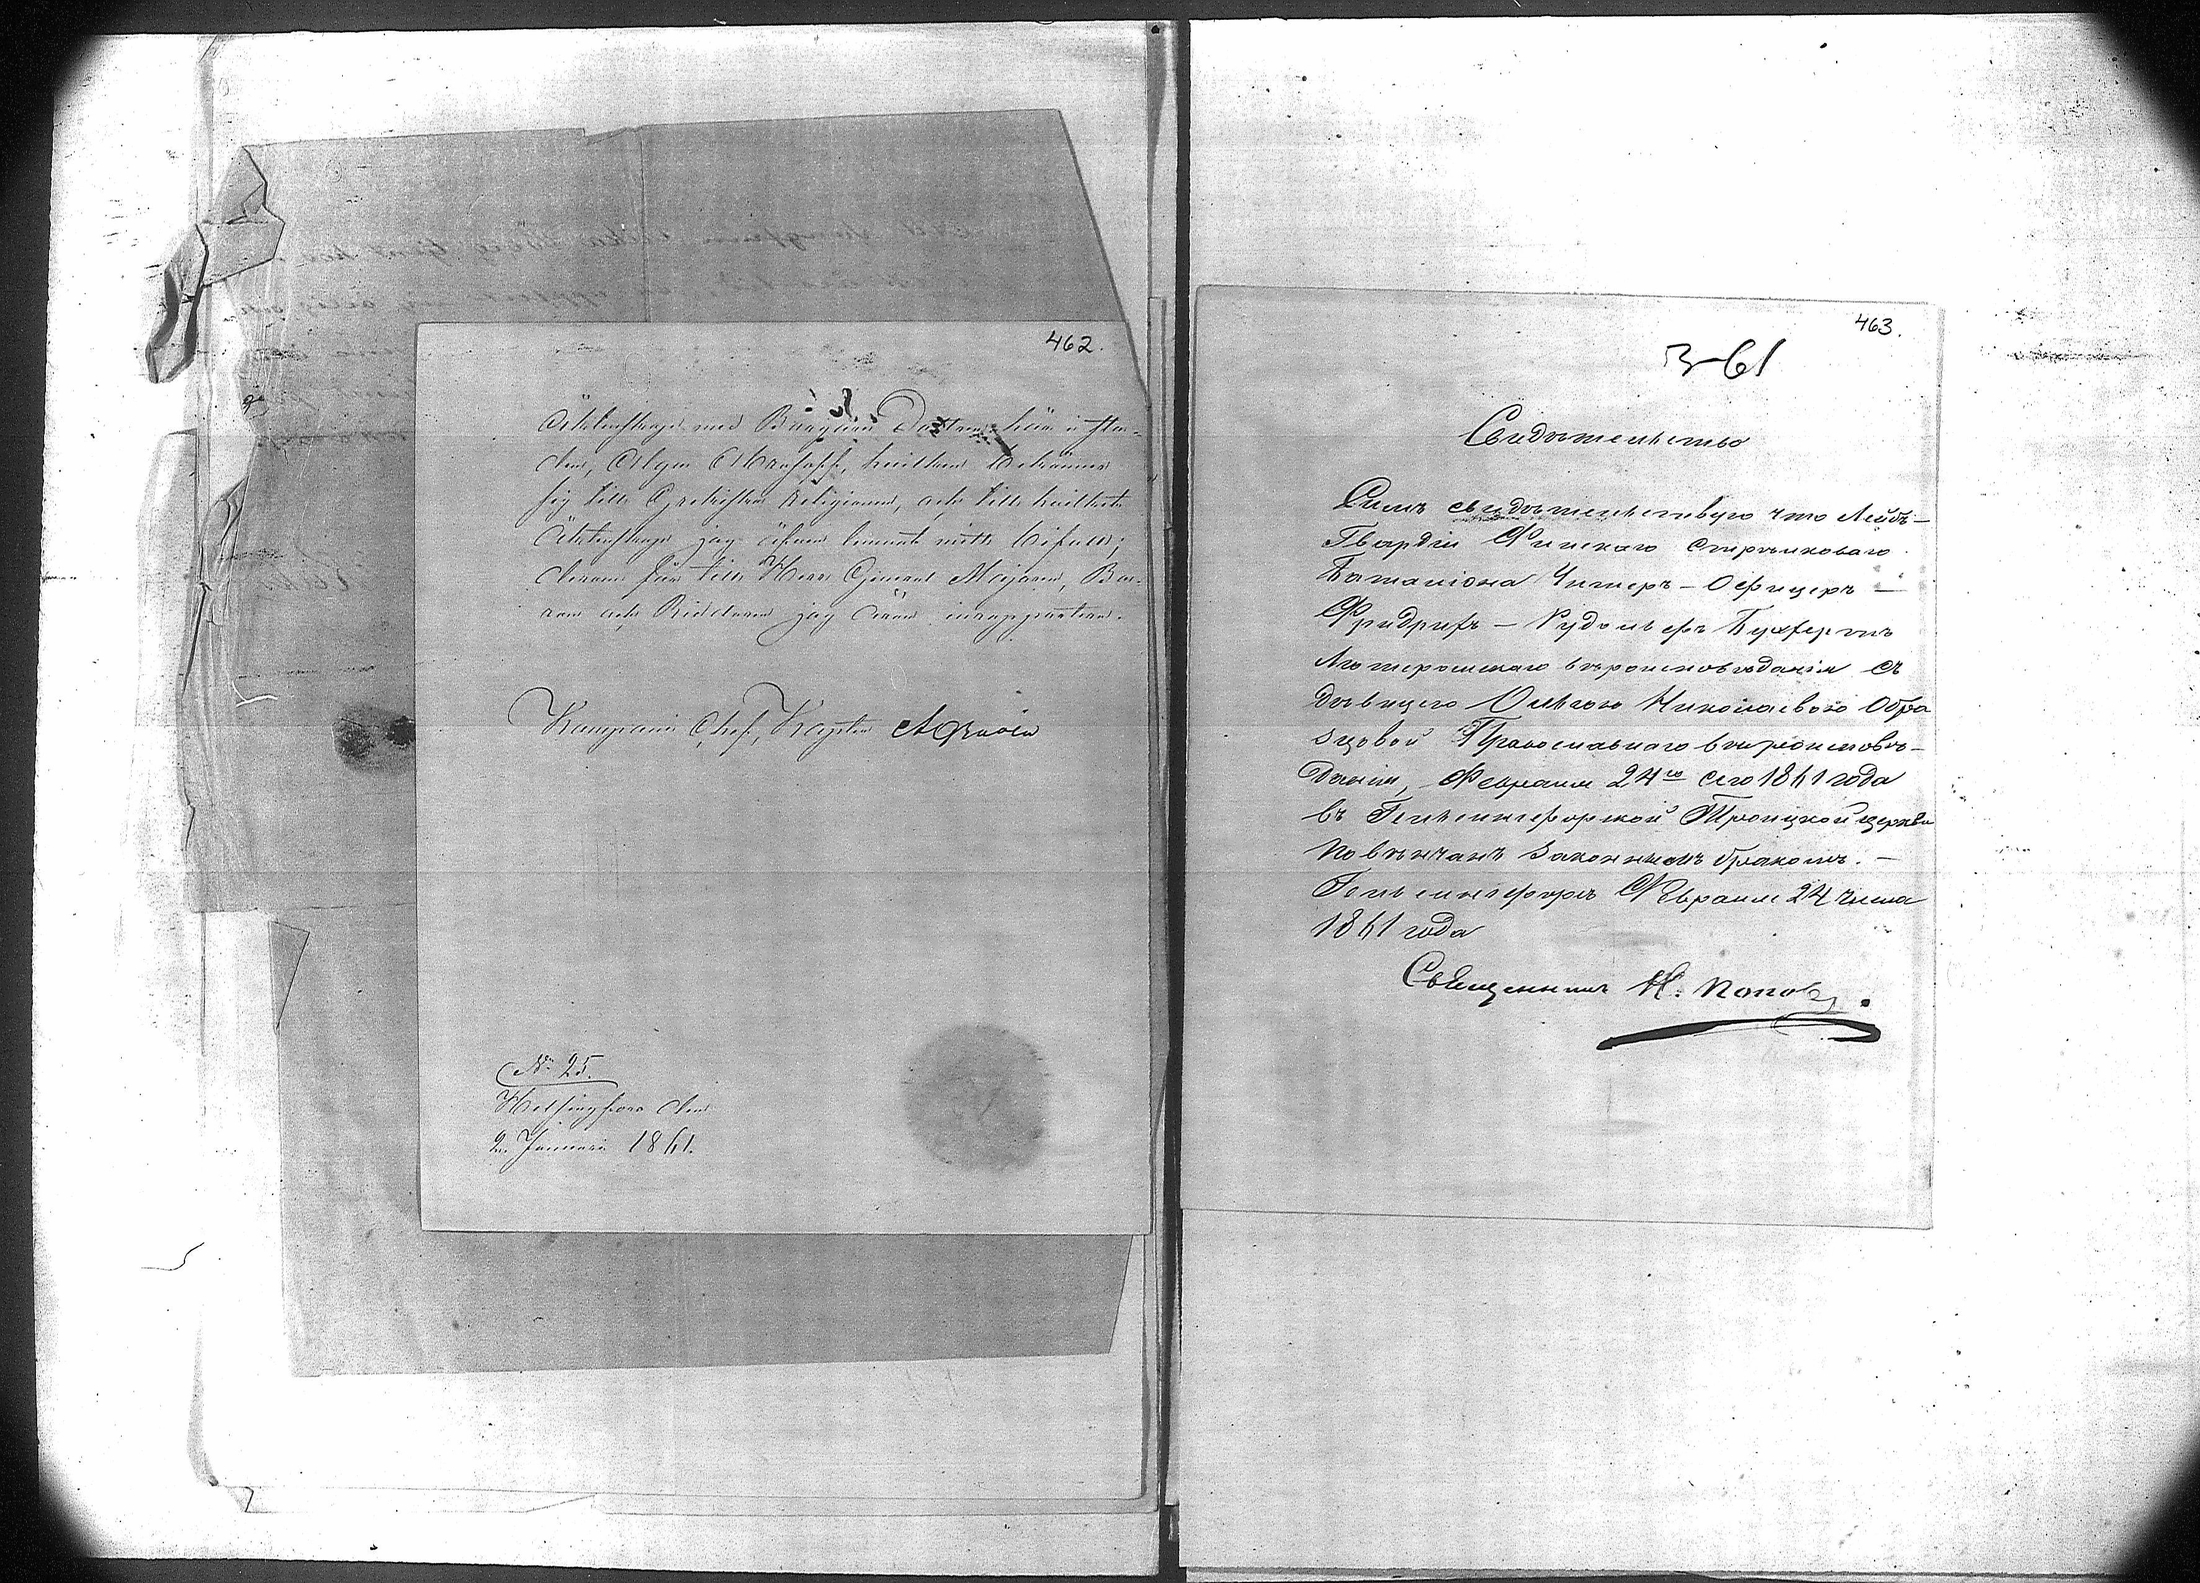 462.
Äktenskap med Borgare Dottren häristaden,
Olga Abrasoff, hvilken bekänner
sig till Grekiska Religionen, och till hvilket
Äktenskap jag äfven lemnat mitt bifall;
derom för till Herr General Majoren, Baron
och Riddaren jag äran inrapportera.
Kompani Chef, Kapten
No 25.
Helsingfors den
2 Januari 1861.
463.
3-61
Свидѣтельство
Симъ свидѣтельствую что Лейбъ-
Гвардіи Финскаго Стрѣлковаго
Баталіона Унтеръ-Офицеръ —
Фридрихъ-Рудольфъ
Лютеранскаго вѣроисповѣданія съ
дѣвицею Ольгою Николаевою Обра
зцовой Православнаго вѣроисповѣ-
данія, Февраля 24го сего 1861 года
въ Гельсингфорской Троицкой церкви
повѣнчанъ законнымъ бракомъ. —
Гельсингфорсъ Февраля 24 числа
1861 года
Священникъ Н. Поповъ.